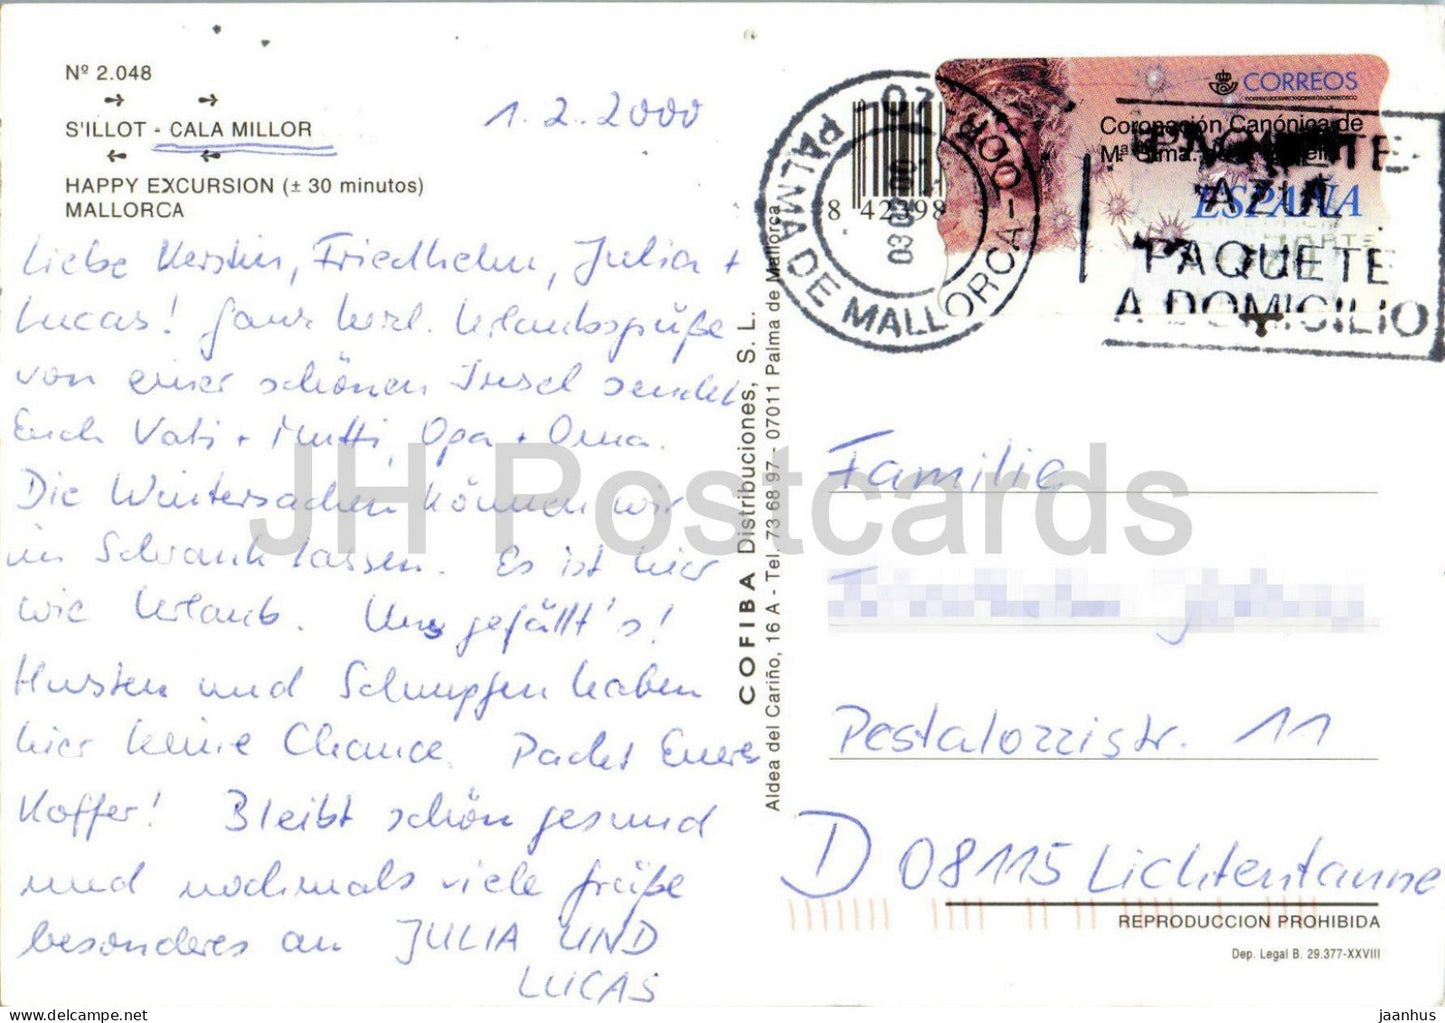 Nº 2.048
S'ILLOT - CALA MILLOR
HAPPY EXCURSION (± 30 minutos)
MALLORCA
1.2.2000
Liebe Kerstin, Friedhelm, Julia +
Lucas! Ganz herzl. Urlaubsgrüße
von einer schönen Insel sendet
Euch Vati + Mutti, Opa + Oma.
Die Wintersachen können wir
im Schrank lassen. Es ist hier
wie Urlaub. Uns gefällt's!
Husten und Schnupfen haben
hier keine Chance. Packt Eure
Koffer! Bleibt schön gesund
und nochmals viele Grüße
besonders an JULIA UND
LUCAS
COFIBA Distribuciones, S. L.
Aldea del Cariño, 16 A - Tel. 73 68 97 - 07011 Palma de Mallorca
8 42398
PALMA DE MALLORCA
CORREOS
Coronación Canónica de
ESPAÑA
PAQUETE
AZUL
PAQUETE
A DOMICILIO
Familie
Pestalozzistr. 11
D 08115 Lichtentanne
REPRODUCCION PROHIBIDA
Dep. Legal B. 29.377-XXVIII
JH Postcards
jaanhus - https://www.ebay.com/str/jhpostcards
jaanhus